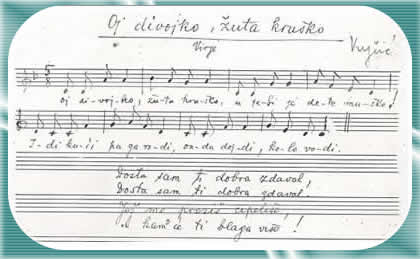 Oj divojko, žuta kruško
Virje
5 8
oj di-voj-ko, žu-ta kru-ško, u te-bi je de-te mu-ško!
I-di ku-ći pa ga ro-di, on-da doj-di, ko-lo vo-di.
Dosta sam ti dobra zdaval,
Dosta sam ti dobra zdaval,
Još me
A kam će ti blaga više!